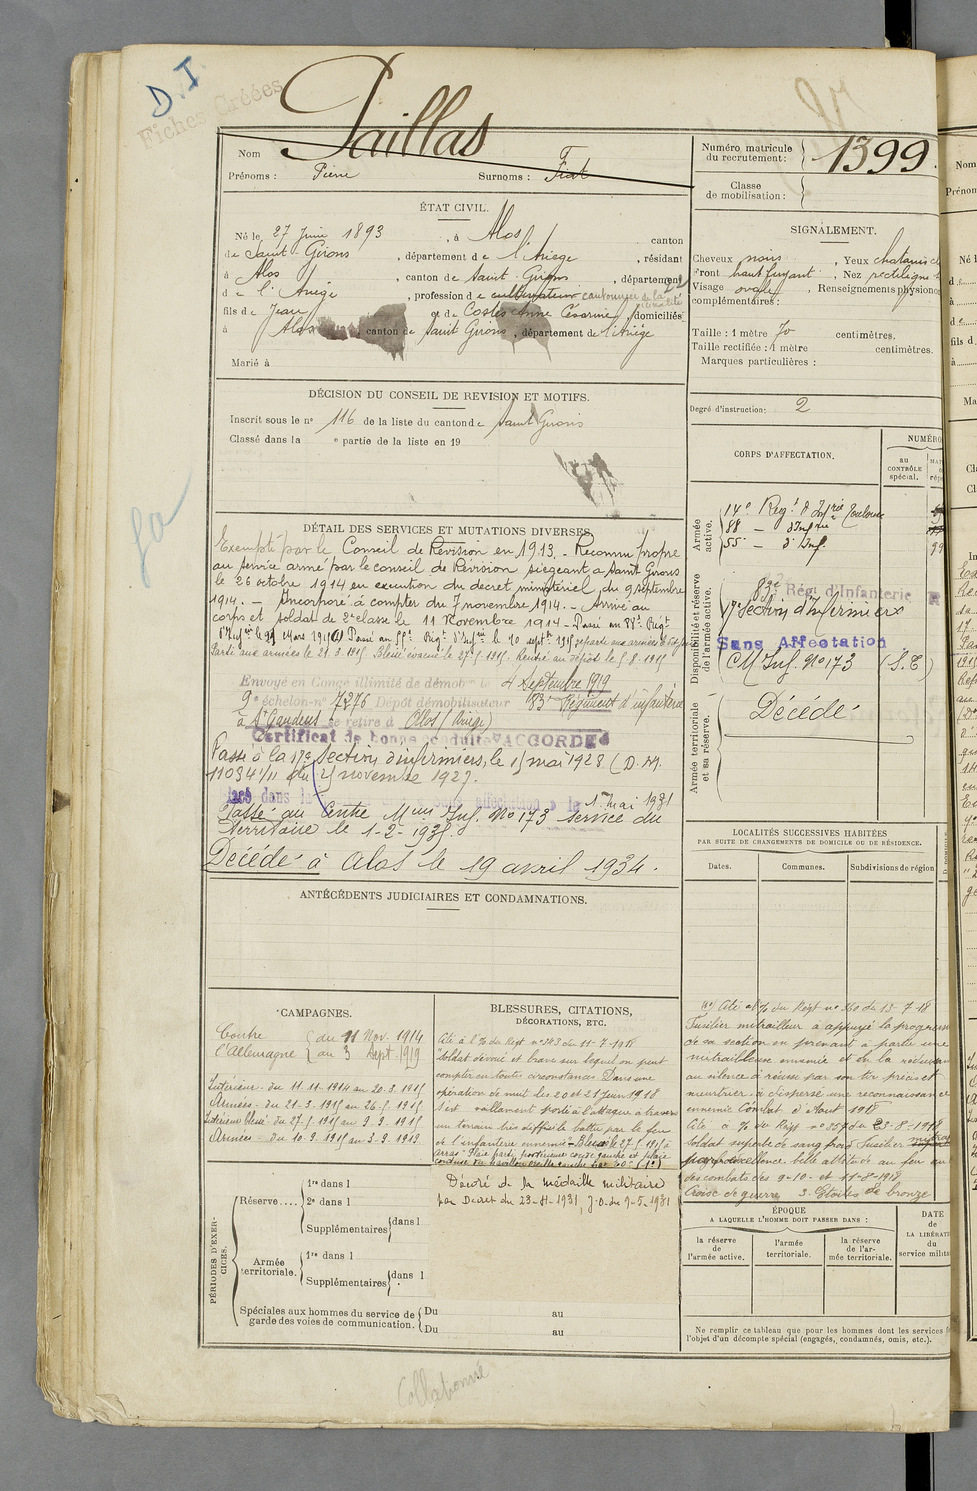 D.I.
Fiches Créées
Paillas
Nom
Prénoms : Pierre Surnoms : Fiat
Numéro matricule
du recrutement : 1399.
Classe
de mobilisation :
ÉTAT CIVIL.
Né le 27 Juin 1893, à Alos, canton
de Saint-Girons, département de l'Ariège, résidant
à Alos, canton de Saint-Girons, département
de l'Ariège, profession de cultivateur cantonnier de la
fils de Jean et de Costes Anne Césarine, domiciliés
à Alos canton de Saint Girons, département de l'Ariège
Marié à
SIGNALEMENT.
Cheveux noirs, Yeux chatains
Front haut fuyant, Nez rectiligne
Visage ovale, Renseignements physiono
complémentaires :
Taille : 1 mètre 70 centimètres.
Taille rectifiée : 1 mètre centimètres.
Marques particulières :
Degré d'instruction : 2
DÉCISION DU CONSEIL DE REVISION ET MOTIFS.
Inscrit sous le n° 116 de la liste du canton de Saint Girons
Classé dans la e partie de la liste en 19
DÉTAIL DES SERVICES ET MUTATIONS DIVERSES.
Exempté par le Conseil de Revision en 1913. - Reconnu propre
au service armé par le conseil de Revision siégeant à Saint Girons
le 26 octobre 1914 en execution du decret ministériel du 9 septembre
1914. - Incorporé à compter du 7 novembre 1914. - Arrivé au
corps et soldat de 2e classe le 11 Novembre 1914. - Passé au 88e Régt
d'Infie le Mars 1915 Passé au 55e Régt d'Infie le 10 sept. 1915
Parti aux armées le 21.3.1915 Blessé évacué le 27.5.1915. Rentré au dépôt le 5.8.1915
Envoyé en Congé illimité de démob le 4 Septembre 1919
9e échelon n° 7276 Dépôt démobilisateur 83e Régiment d'infanterie
à St Gaudens se retire à Alos (Ariège)
Certificat de bonne conduite "ACCORDÉ"
Passé à la 17e Section d'infirmiers, le 15 mai 1928 (D.M.
11034 1/11 du 25 novembre 1927.
lacé dans la sans affectation le 1er Mai 1931
Passé au Centre Mseur Inf. No 173 Service du
Territoire le 1-2-193
Décédé à Alos le 19 avril 1934.
CORPS D'AFFECTATION.
NUMÉRO
au
CONTRÔLE
spécial.
Armée
active.
14e Régt d'Infrie Toulouse
88 - d'Infrie
55 - d'Inf.
Disponibilité et réserve
de l'armée active.
83e Régt d'Infanterie
17e Section d'Infirmiers
Sans Affectation
CM Inf. No 173 (S.T)
Armée territoriale
et sa réserve.
Décédé
LOCALITÉS SUCCESSIVES HABITÉES
PAR SUITE DE CHANGEMENTS DE DOMICILE OU DE RÉSIDENCE.
Dates. Communes. Subdivisions de région
ANTÉCÉDENTS JUDICIAIRES ET CONDAMNATIONS.
CAMPAGNES.
Contre
l'Allemagne
du 11 Nov. 1914
au 3 Sept. 1919
Intérieur - du 11.11.1914 au 20.3.1915
Armées - du 21.3.1915 au 26.5.1915
Intérieur blessé - du 27.5.1915 au 9.9.1915
Armées - du 10.9.1915 au 3.9.1919
BLESSURES, CITATIONS,
DÉCORATIONS, ETC.
Cité à l'O/ du Régt n° 343 du 11-7-1918
"Soldat dévoué et brave sur lequel on peut
compter en toutes circonstances. Dans une
opération de nuit les 20 et 21 juin 1918
s'est vaillamment porté à l'attaque à travers
un terrain très difficile battu par le feu
de l'infanterie ennemie" - Blessé le 27.5.1915 à
Arras - Plaie partie postérieure coude gauche et plaie
(1°)
Décoré de la médaille militaire
par Decret du 23-4-1931, J.O. du 9-5-1931
(1°) Cité à l'O/ du Régt n° 350 du 13-7-18
Fusilier mitrailleur a appuyé la progression
de sa section en prenant à partie une
mitrailleuse ennemie et en la réduisant
au silence a réussi par son tir précis et
meurtrier à disperser une reconnaissance
ennemie Combat d'Aout 1918
Cité à l'O/ du Régt n° 357 du 23-8-1918
Soldat superbe de sang froid Fusilier
par excellence belle attitude au feu au
des combats des 9-10- et 11-8-1918
Croix de guerre 3 Etoiles de bronze
PÉRIODES D'EXER-
CICES.
Réserve....
1re dans l
2e dans l
Supplémentaires dans l
Armée
territoriale.
1re dans l
Supplémentaires dans l
Spéciales aux hommes du service de
garde des voies de communication.
Du au
Du au
ÉPOQUE
A LAQUELLE L'HOMME DOIT PASSER DANS :
la réserve
de
l'armée active.
l'armée
territoriale.
la réserve
de l'ar-
mée territoriale.
DATE
de
LA LIBÉRAT
du
service milita
Ne remplir ce tableau que pour les hommes dont les services
l'objet d'un décompte spécial (engagés, condamnés, omis, etc.).
Collationné